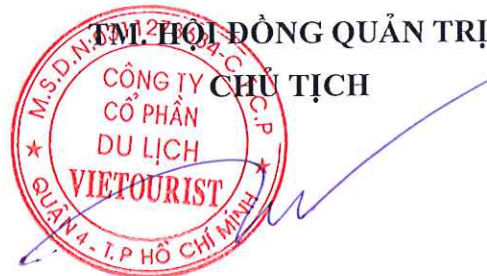 TM. HỘI ĐỒNG QUẢN TRỊ
CHỦ TỊCH
CÔNG TY
CỔ PHẦN
DU LỊCH
VIETOURIST
QUẬN 4 - T.P HỒ CHÍ MINH